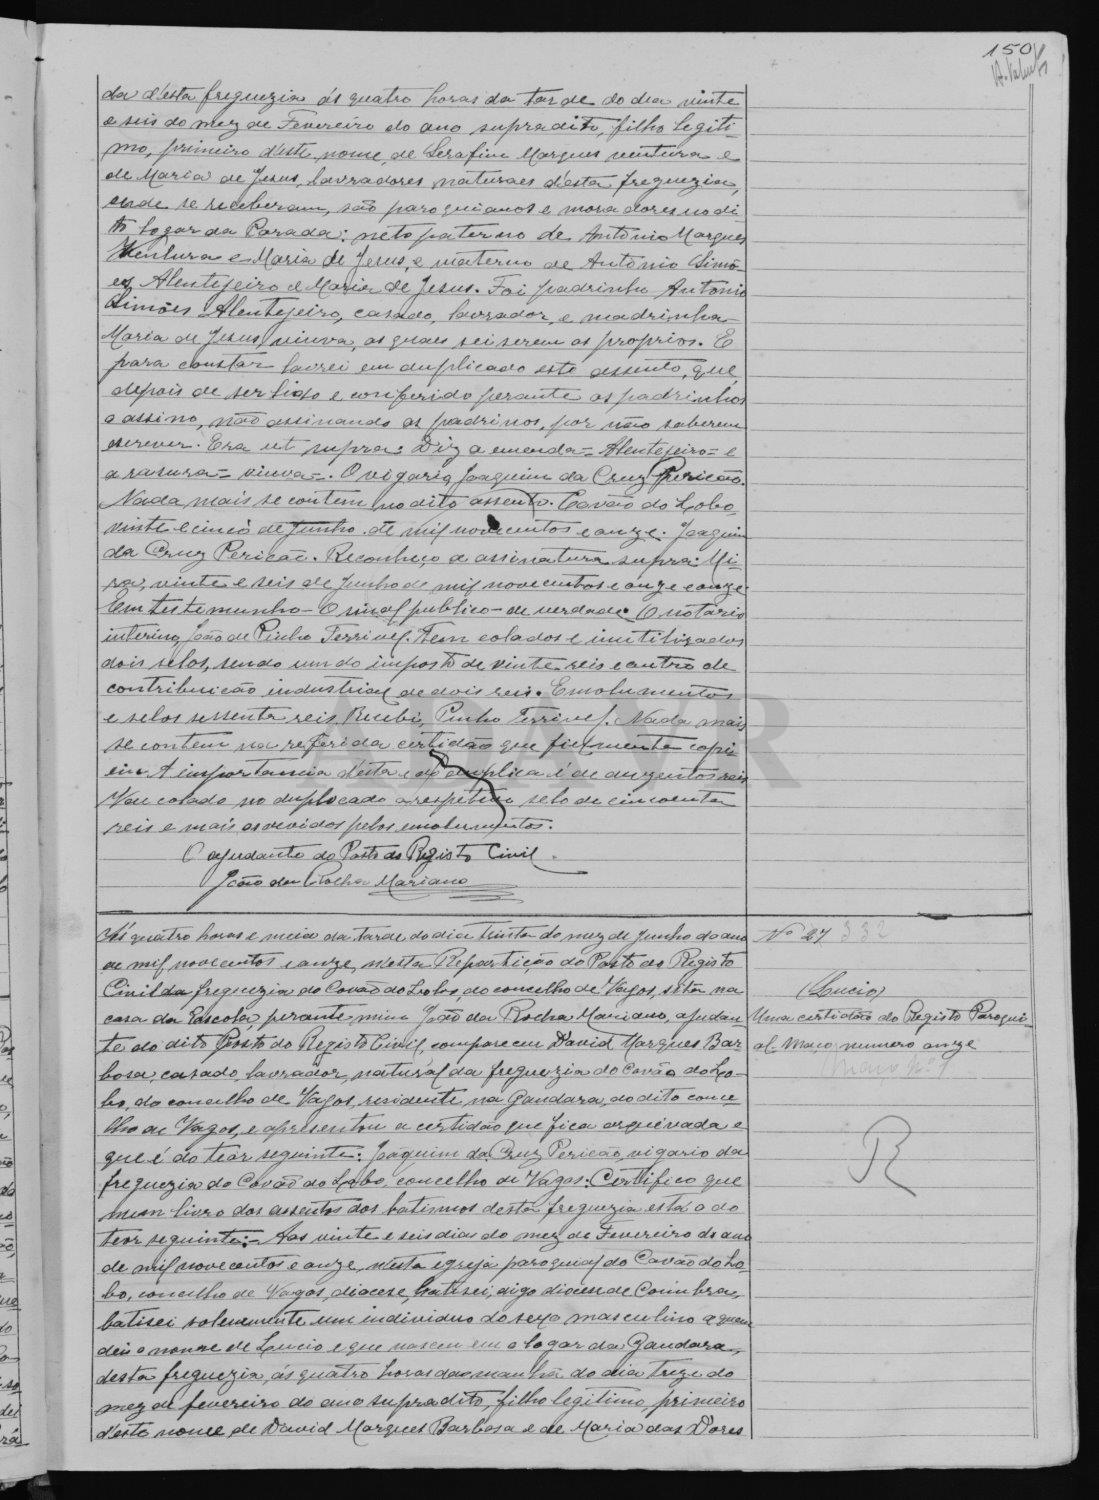 150
da d'esta freguezia ás quatro horas da tarde do dia vinte
e seis do mez de Fevereiro do ano supradito, filho legiti-
mo, primeiro d'este nome, de Serafim Marques Ventura e
de Maria de Jesus, lavradores, naturaes d'esta freguezia,
onde se receberam, são paroquianos e moradores no di-
to logar da Parada: neto paterno de Antonio Marques
Ventura e Maria de Jesus, e materno de Antonio Simõ-
es Alentejeiro e Maria de Jesus. Foi padrinho Antonio
Simões Alentejeiro, casado, lavrador, e madrinha
Maria de Jesus, viuva, os quaes sei serem os proprios. E
para constar lavrei em duplicado este assento, que,
depois de ser lido e conferido perante os padrinhos
o assino, não assinando os padrinos, por não saberem
escrever. Era ut supra: Diz a emenda = Alentejeiro = e
a rasura = viuva =. O vigario Joaquim da Cruz Pericão.
Nada mais se contem no dito assento. Covão do Lobo,
vinte e cinco de Junho de mil novecentos e onze. Joaquim
da Cruz Pericão. Reconheço a assinatura supra. Mi-
ra, vinte e seis de Junho de mil novecentos e onze e onze.
Em testemunho - O sinal publico - de verdade. O notario
interino, João de Pinho Terrivel. Tem colados e inutilizados
dois selos, sendo um do imposto de vinte reis e outro de
contribuição industrial de dois reis. Emolumentos
e selos sessenta reis. Recebi, Pinho Terrivel. Nada mais
se contem na referida certidão que fielmente copi-
ei. A importancia d'esta e do duplica é de duzentos reis
Vae colado no duplicado o respetivo selo de cincoenta
reis e mais os devidos pelos emolumentos.
O ajudante do Posto do Registo Civil.
João da Rocha Mariano
Ás quatro horas e meia da tarde do dia trinta do mez de Junho do ano
de mil novecentos e onze, n'esta Repartição do Posto do Registo
Civil da freguezia do Covão do Lobo, do concelho de Vagos, sita na
casa da Escola, perante mim João da Rocha Mariano, ajudan-
te do dito Posto do Registo Civil, compareceu David Marques Bar-
bosa, casado, lavrador, natural da freguezia do Covão do Lo-
bo, do concelho de Vagos, residente na Gandara, do dito conce-
lho de Vagos, e apresentou a certidão que fica arquivada e
que é do teor seguinte: Joaquim da Cruz Pericão, vigario da
freguezia do Covão do Lobo, concelho de Vagos: Certifico que
num livro dos assentos dos batismos desta freguezia está o do
teor seguinte: - Aos vinte e seis dias do mez de Fevereiro do ano
de mil novecentos e onze, n'esta egreja paroquial do Covão do Lo-
bo, concelho de Vagos, diocese, batisei, digo diocese de Coimbra,
batisei solenemente um individuo do sexo masculino a quem
dei o nome de Lucio e que nasceu em o logar da Gandara,
desta freguezia, ás quatro horas da manhã do dia treze do
mez de fevereiro do ano supradito, filho legitimo, primeiro
d'este nome de David Marques Barbosa e de Maria das Dores
Nº 27 332
(Lucio)
Uma certidão do Registo Paroqui-
al - Maço numero onze
Maço nº 1
R
AHAVR